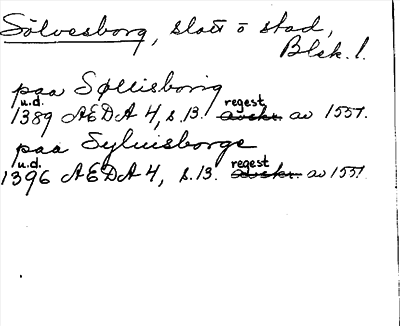 Sölvesborg, slott o stad,
Blek. l.
paa Søllisborig
u.d. regest
1389 AEDA 4, s. 13. avskr. av 1551.
paa Sylvisborge
u.d. regest
1396 AEDA 4, s. 13. avskr. av 1551.